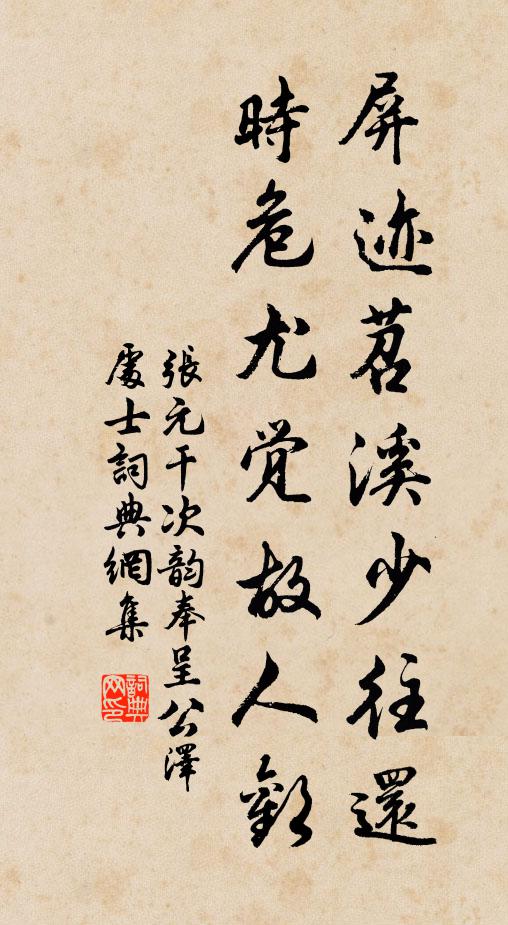 屏迹苕溪少往還
時危尤覺故人歡
張元干次韵奉呈公澤
處士詞典網集
詞典
网印